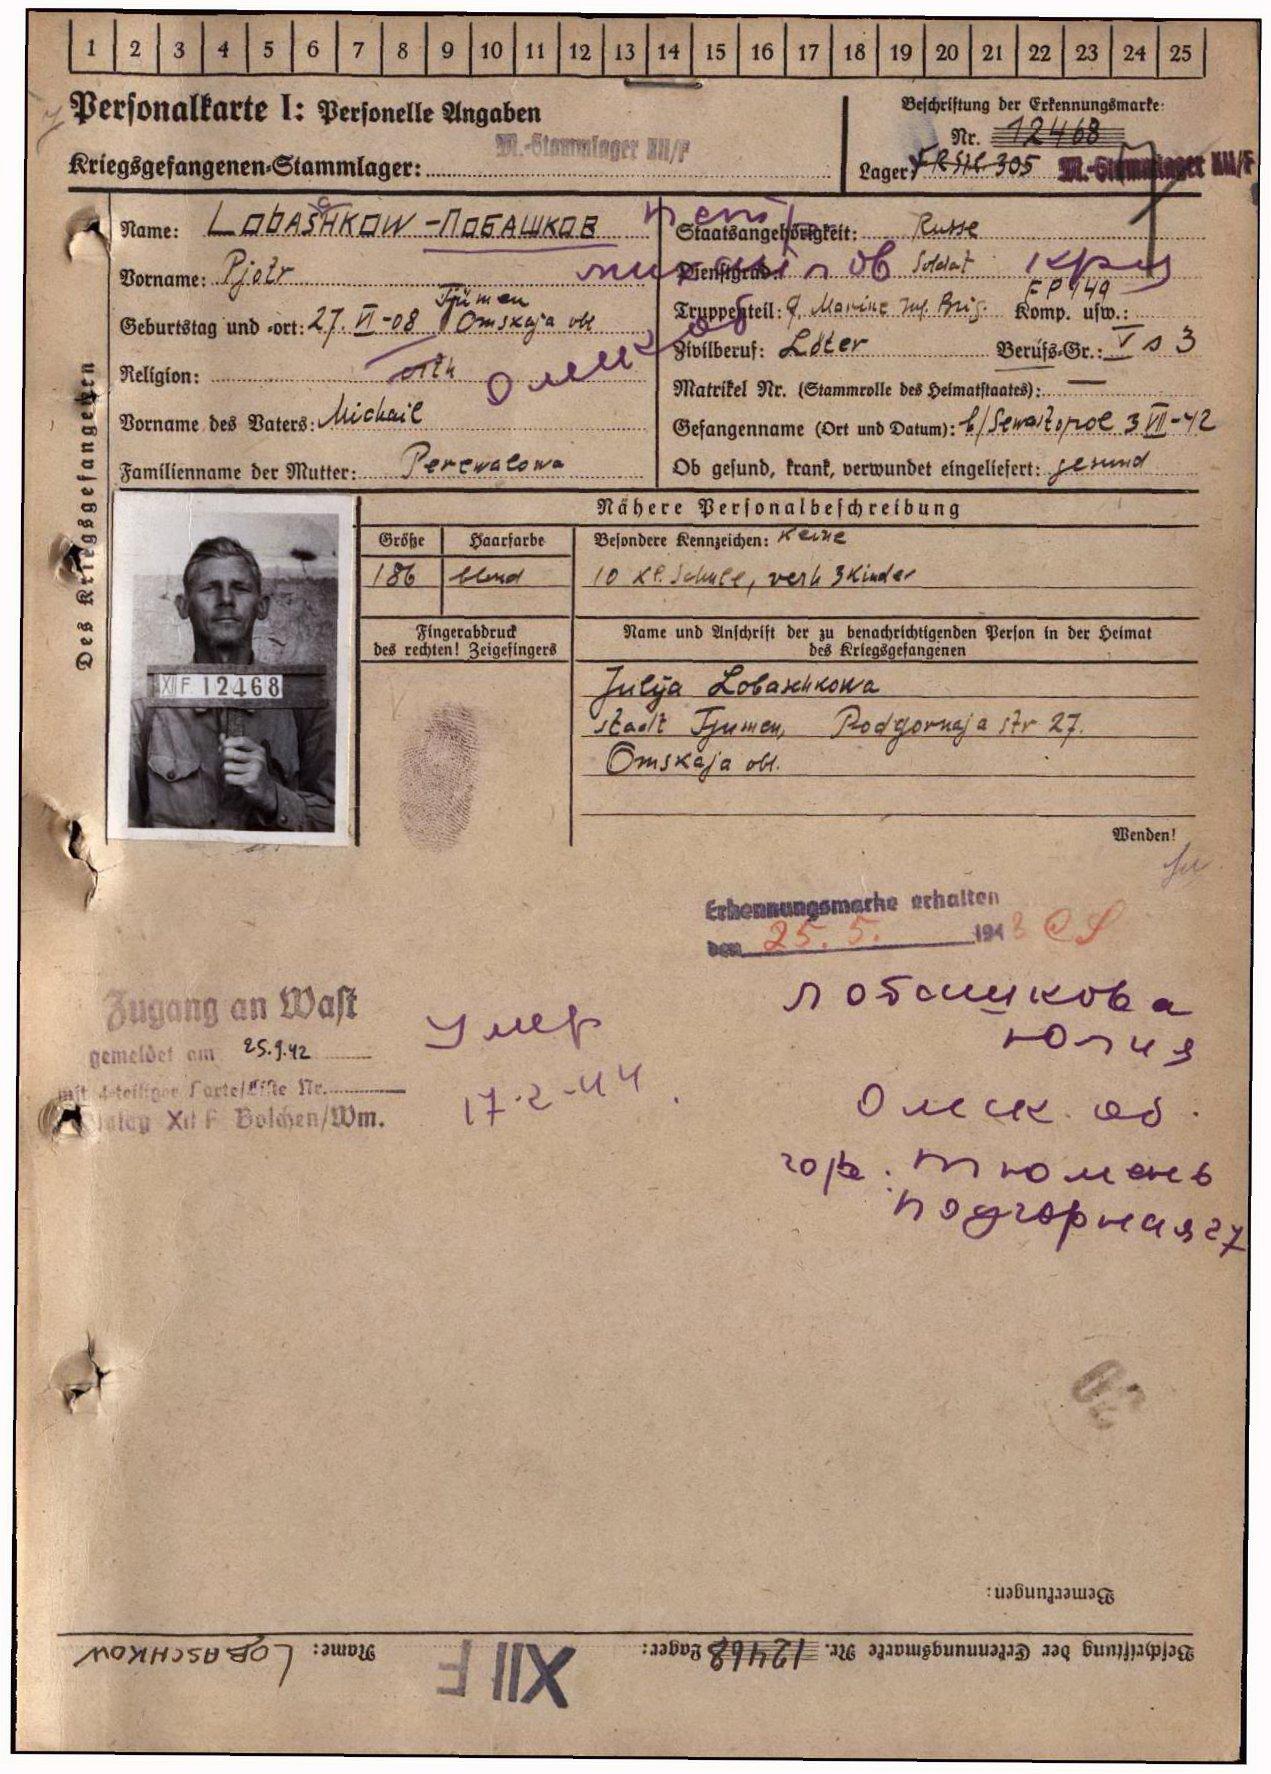 1 2 3 4 5 6 7 8 9 10 11 12 13 14 15 16 17 18 19 20 21 22 23 24 25
Personalkarte I: Personelle Angaben
Kriegsgefangenen-Stammlager: M.-Stammlager XII/F
Beschriftung der Erkennungsmarke:
Nr. 12468
Lager: 305 M.-Stammlager XII/F
Des Kriegsgefangenen
Name: LOBASHKOW - ЛОБАШКОВ
Vorname: Pjotr
Tjumen
Geburtstag und -ort: 27. VI-08 Omskaja obl
Religion: orth
Vorname des Vaters: Michail
Familienname der Mutter: Perewalowa
Омск об
Staatsangehörigkeit: Russe
Dienstgrad: Soldat
Truppenteil: 9. Marine Inf. Brig. Komp. usw.:
Zivilberuf: Löter Berufs-Gr.: V s 3
Matrikel Nr. (Stammrolle des Heimatstaates): —
Gefangenname (Ort und Datum): b/Sewastopol 3 VII-42
Ob gesund, krank, verwundet eingeliefert: gesund
Nähere Personalbeschreibung
Größe Haarfarbe Besondere Kennzeichen: Keine
186 blond 10 Kl. Schule, verh 3 Kinder
XII F 12468
Fingerabdruck
des rechten! Zeigefingers
Name und Anschrift der zu benachrichtigenden Person in der Heimat
des Kriegsgefangenen
Julija Lobaschkowa
Stadt Tjumen, Podgornaja str 27.
Omskaja obl.
Wenden!
Erkennungsmarke erhalten
den 25. 5. 1943
Zugang an Wast
gemeldet am 25.9.42
mit -teiliger Karte/Liste Nr.
Stalag XII F Bolchen/Wm.
Умер
17-2-44.
Лобашкова
Юлия
Омск. об.
гор. Тюмень
Подгорная 27
Bemerkungen:
Beschriftung der Erkennungsmarke Nr. 12468 Lager: XII F Name: LOBASCHKOW